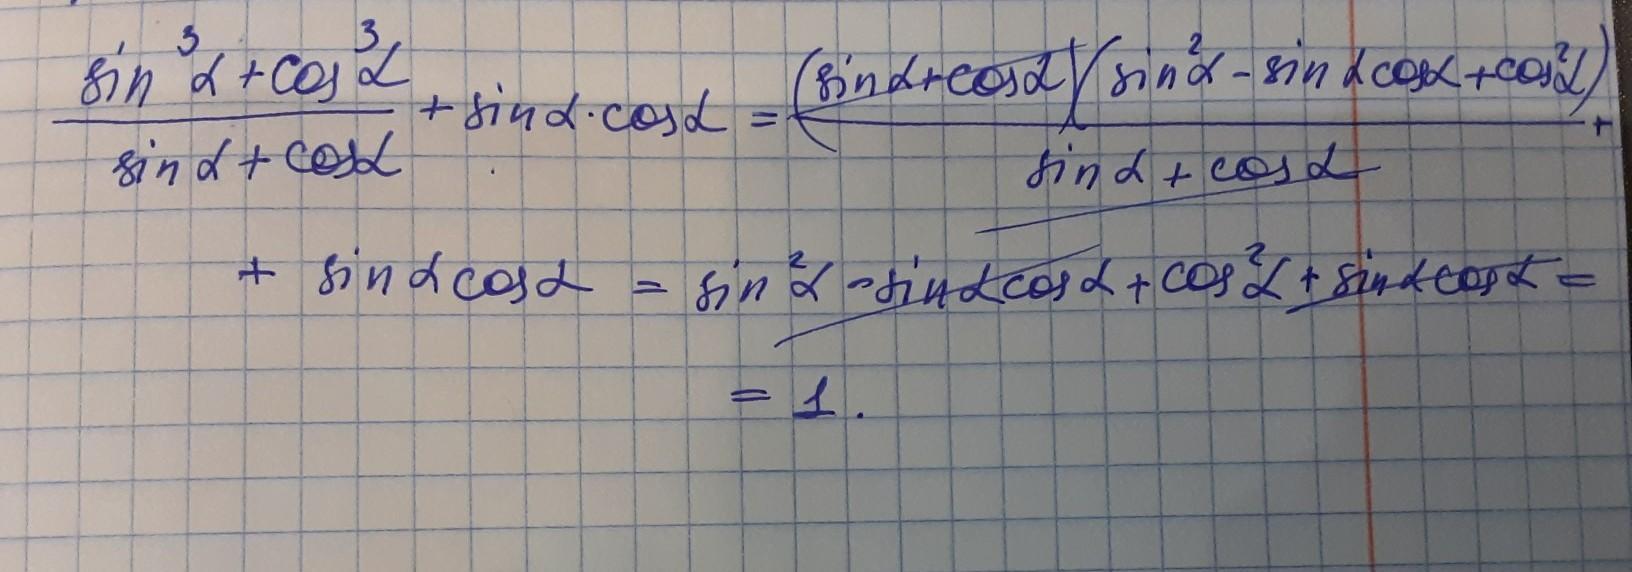 (sin³α + cos³α)/(sin α + cos α) + sin α · cos α = (sin α + cos α)(sin²α - sin α cos α + cos²α)/(sin α + cos α) +
+ sin α cos α = sin²α - sin α cos α + cos²α + sin α cos α =
= 1.